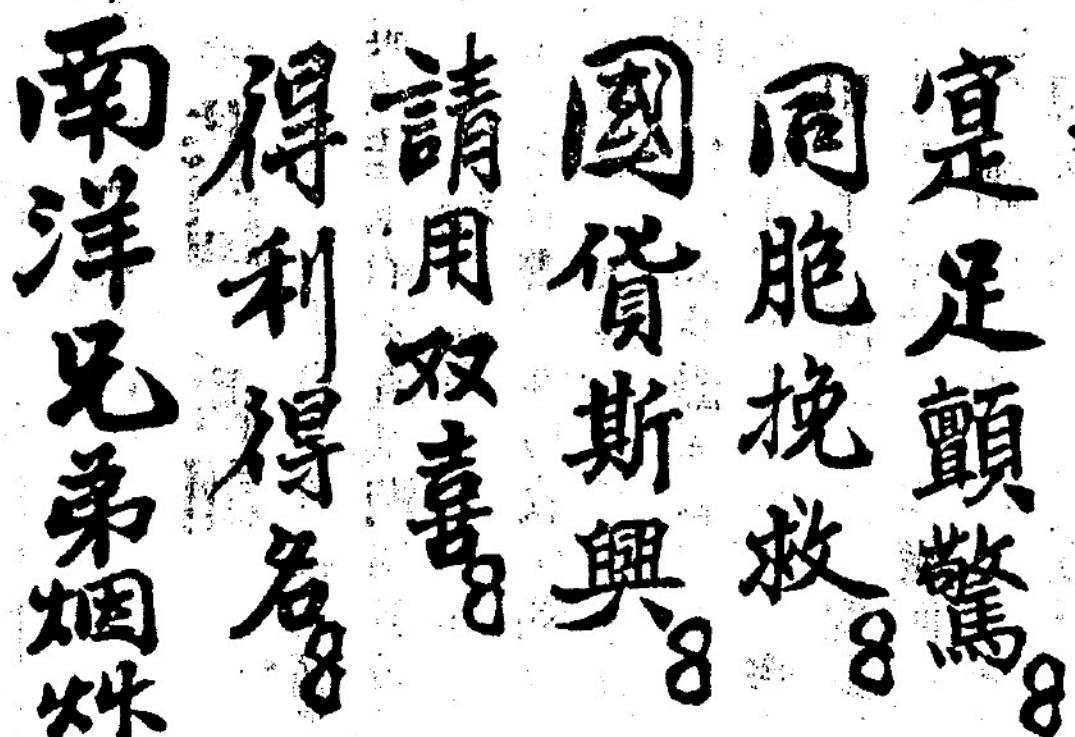 寔足顫驚8
同胞挽救8
國貨斯興8
請用双喜8
得利得名8
南洋兄弟烟